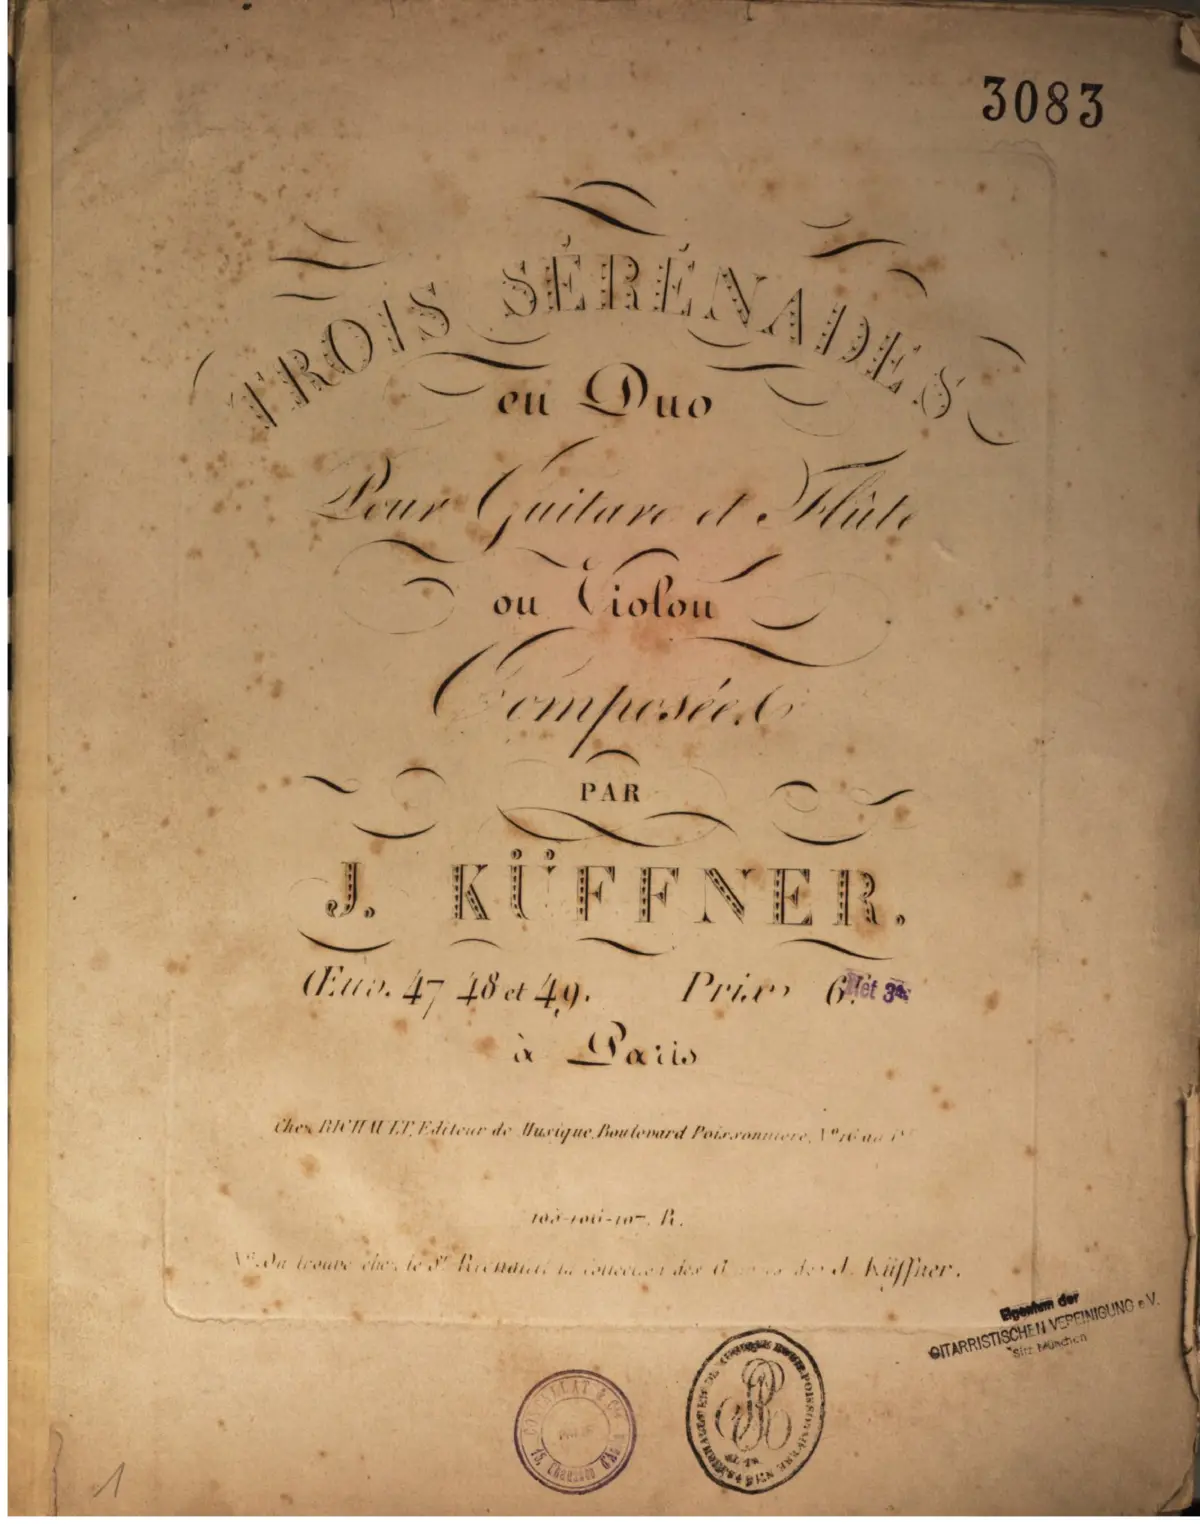 3083
TROIS SÉRÉNADES
en Duo
Pour Guitare et Flûte
ou Violon
Composées
PAR
J. KÜFFNER.
Œuv. 47 48 et 49. Prix 6.
Net 3
à Paris
Chez RICHAULT, Editeur de Musique, Boulevard Poissonnière, N° 16 au 1er
105-106-107. R.
On trouve chez le Sr Richault la collection des des J. Küffner.
Eigentum der
GITARRISTISCHEN VEREINIGUNG e.V.
Sitz München
COSTALLAT & Cie
15, Chaussée d'A
RICHAULT
1